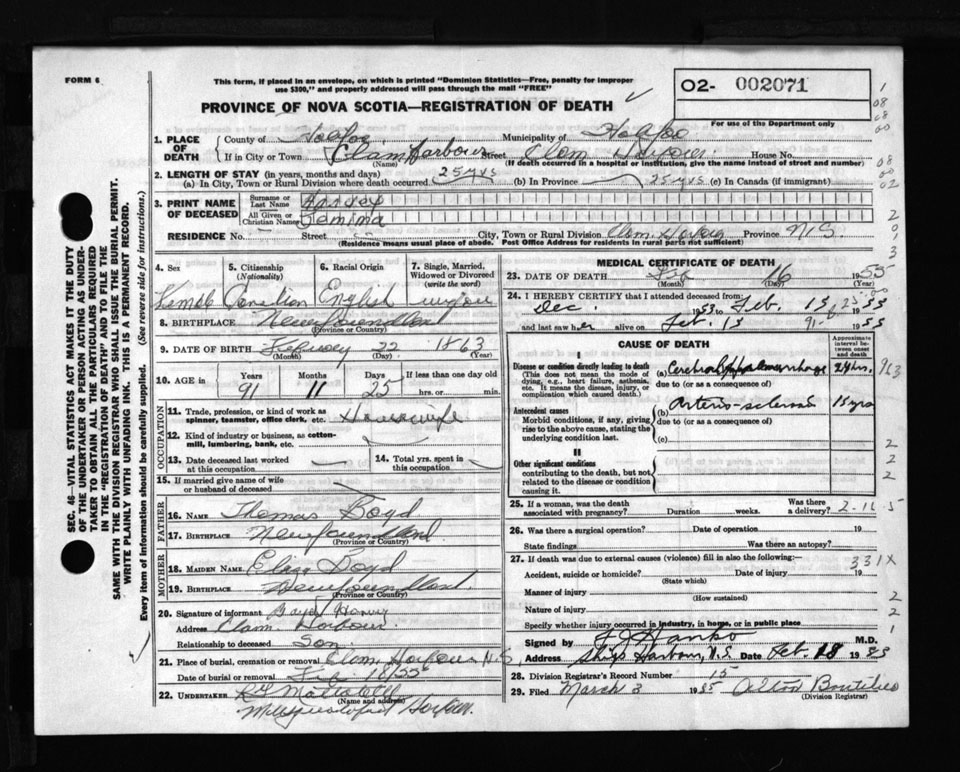 FORM 6
This form, if placed in an envelope, on which is printed "Dominion Statistics—Free, penalty for improper
use $300," and properly addressed will pass through the mail "FREE"
PROVINCE OF NOVA SCOTIA—REGISTRATION OF DEATH
02- 002071
For use of the Department only
1. PLACE OF DEATH
County of Halifax Municipality of Halifax
If in City or Town Clam Harbour Street Clam Harbour House No.
(Name) (If death occurred in a hospital or institution, give the name instead of street and number)
2. LENGTH OF STAY (in years, months and days)
(a) In City, Town or Rural Division where death occurred 25 yrs (b) In Province 25 yrs (c) In Canada (if immigrant)
3. PRINT NAME OF DECEASED
Surname or Last Name Harvey
All Given or Christian Names Jemima
RESIDENCE No. Street City, Town or Rural Division Clam Harbour Province N.S.
(Residence means usual place of abode. Post Office Address for residents in rural parts not sufficient)
4. Sex Female
5. Citizenship (Nationality) Canadian
6. Racial Origin English
7. Single, Married, Widowed or Divorced (write the word)
8. BIRTHPLACE Newfoundland
(Province or Country)
9. DATE OF BIRTH 22 1863
(Month) (Day) (Year)
10. AGE in Years 91 Months 11 Days 25 If less than one day old hrs. or min.
OCCUPATION
11. Trade, profession, or kind of work as spinner, teamster, office clerk, etc. Housewife
12. Kind of industry or business, as cotton-mill, lumbering, bank, etc.
13. Date deceased last worked at this occupation
14. Total yrs. spent in this occupation
15. If married give name of wife or husband of deceased
FATHER
16. NAME Thomas Boyd
17. BIRTHPLACE Newfoundland
(Province or Country)
MOTHER
18. MAIDEN NAME Boyd
19. BIRTHPLACE Newfoundland
(Province or Country)
20. Signature of informant
Address Clam Harbour
Relationship to deceased Son
21. Place of burial, cremation or removal Clam Harbour N.S
Date of burial or removal Feb 18/55
22. UNDERTAKER
(Name and address)
Harbour.
MEDICAL CERTIFICATE OF DEATH
23. DATE OF DEATH Feb 16 1955
(Month) (Day)
24. I HEREBY CERTIFY that I attended deceased from:
Dec. 1953 to Feb. 15 1955
and last saw her alive on Feb. 15 1955
CAUSE OF DEATH
Approximate interval between onset and death
I
Disease or condition directly leading to death
(This does not mean the mode of dying, e.g., heart failure, asthenia, etc. It means the disease, injury, or complication which caused death.)
(a) Cerebral 24 hrs.
due to (or as a consequence of)
Antecedent causes
Morbid conditions, if any, giving rise to the above cause, stating the underlying condition last.
(b) Arterio-sclerosis 15 yrs
due to (or as a consequence of)
(c)
II
Other significant conditions
contributing to the death, but not related to the disease or condition causing it.
25. If a woman, was the death associated with pregnancy? Duration weeks. Was there a delivery?
26. Was there a surgical operation? Date of operation 19
State findings Was there an autopsy?
27. If death was due to external causes (violence) fill in also the following:—
Accident, suicide or homicide? Date of injury 19
(State which)
331X
Manner of injury
(How sustained)
Nature of injury
Specify whether injury occurred in industry, in home, or in public place
Signed by M.D.
Address Ships Harbour, N.S. Date Feb. 18 1955
28. Division Registrar's Record Number 15
29. Filed March 3 1955 Alton Boutilier
(Division Registrar)
SEC. 46—VITAL STATISTICS ACT MAKES IT THE DUTY
OF THE UNDERTAKER OR PERSON ACTING AS UNDER-
TAKER TO OBTAIN ALL THE PARTICULARS REQUIRED
IN THE "REGISTRATION OF DEATH" AND TO FILE THE
SAME WITH THE DIVISION REGISTRAR WHO SHALL ISSUE THE BURIAL PERMIT.
WRITE PLAINLY WITH UNFADING INK. THIS IS A PERMANENT RECORD.
Every item of information should be carefully supplied. (See reverse side for instructions.)